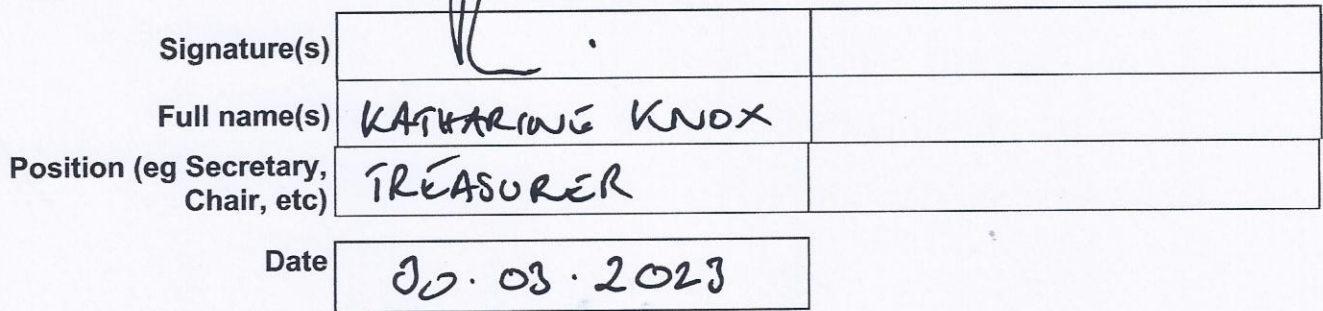 Signature(s)
Full name(s) KATHARINE KNOX
Position (eg Secretary,
Chair, etc) TREASURER
Date 30.03.2023